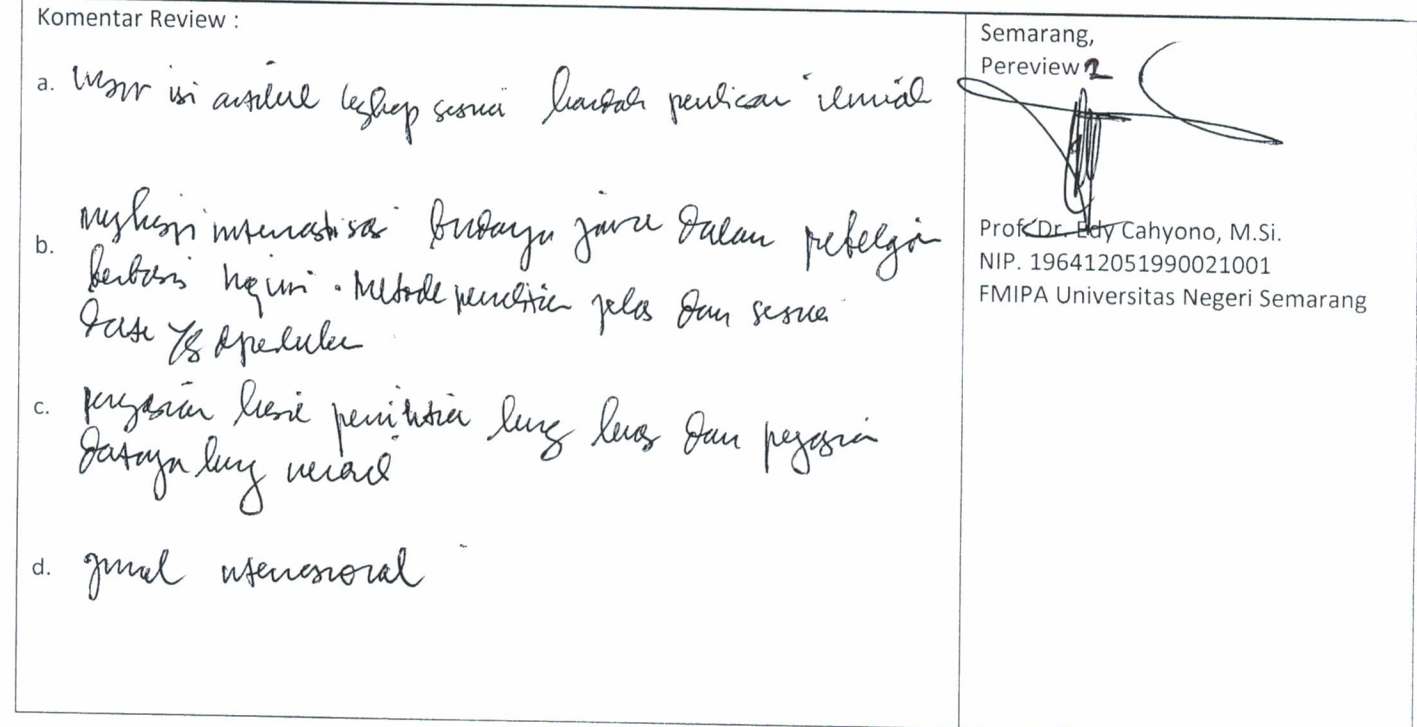 Komentar Review :
a. unsur isi artikel lengkap sesuai kaidah penulisan ilmiah
b. mengkaji internalisasi budaya jawa dalam
berbasis inquiri. Metode penelitian jelas dan sesuai
data yg diperlukan
c. penyajian hasil penelitian kurang luas dan penyajian
datanya kurang
d. jurnal internasional
Semarang,
Pereview 2
Prof. Dr. Edy Cahyono, M.Si.
NIP. 196412051990021001
FMIPA Universitas Negeri Semarang